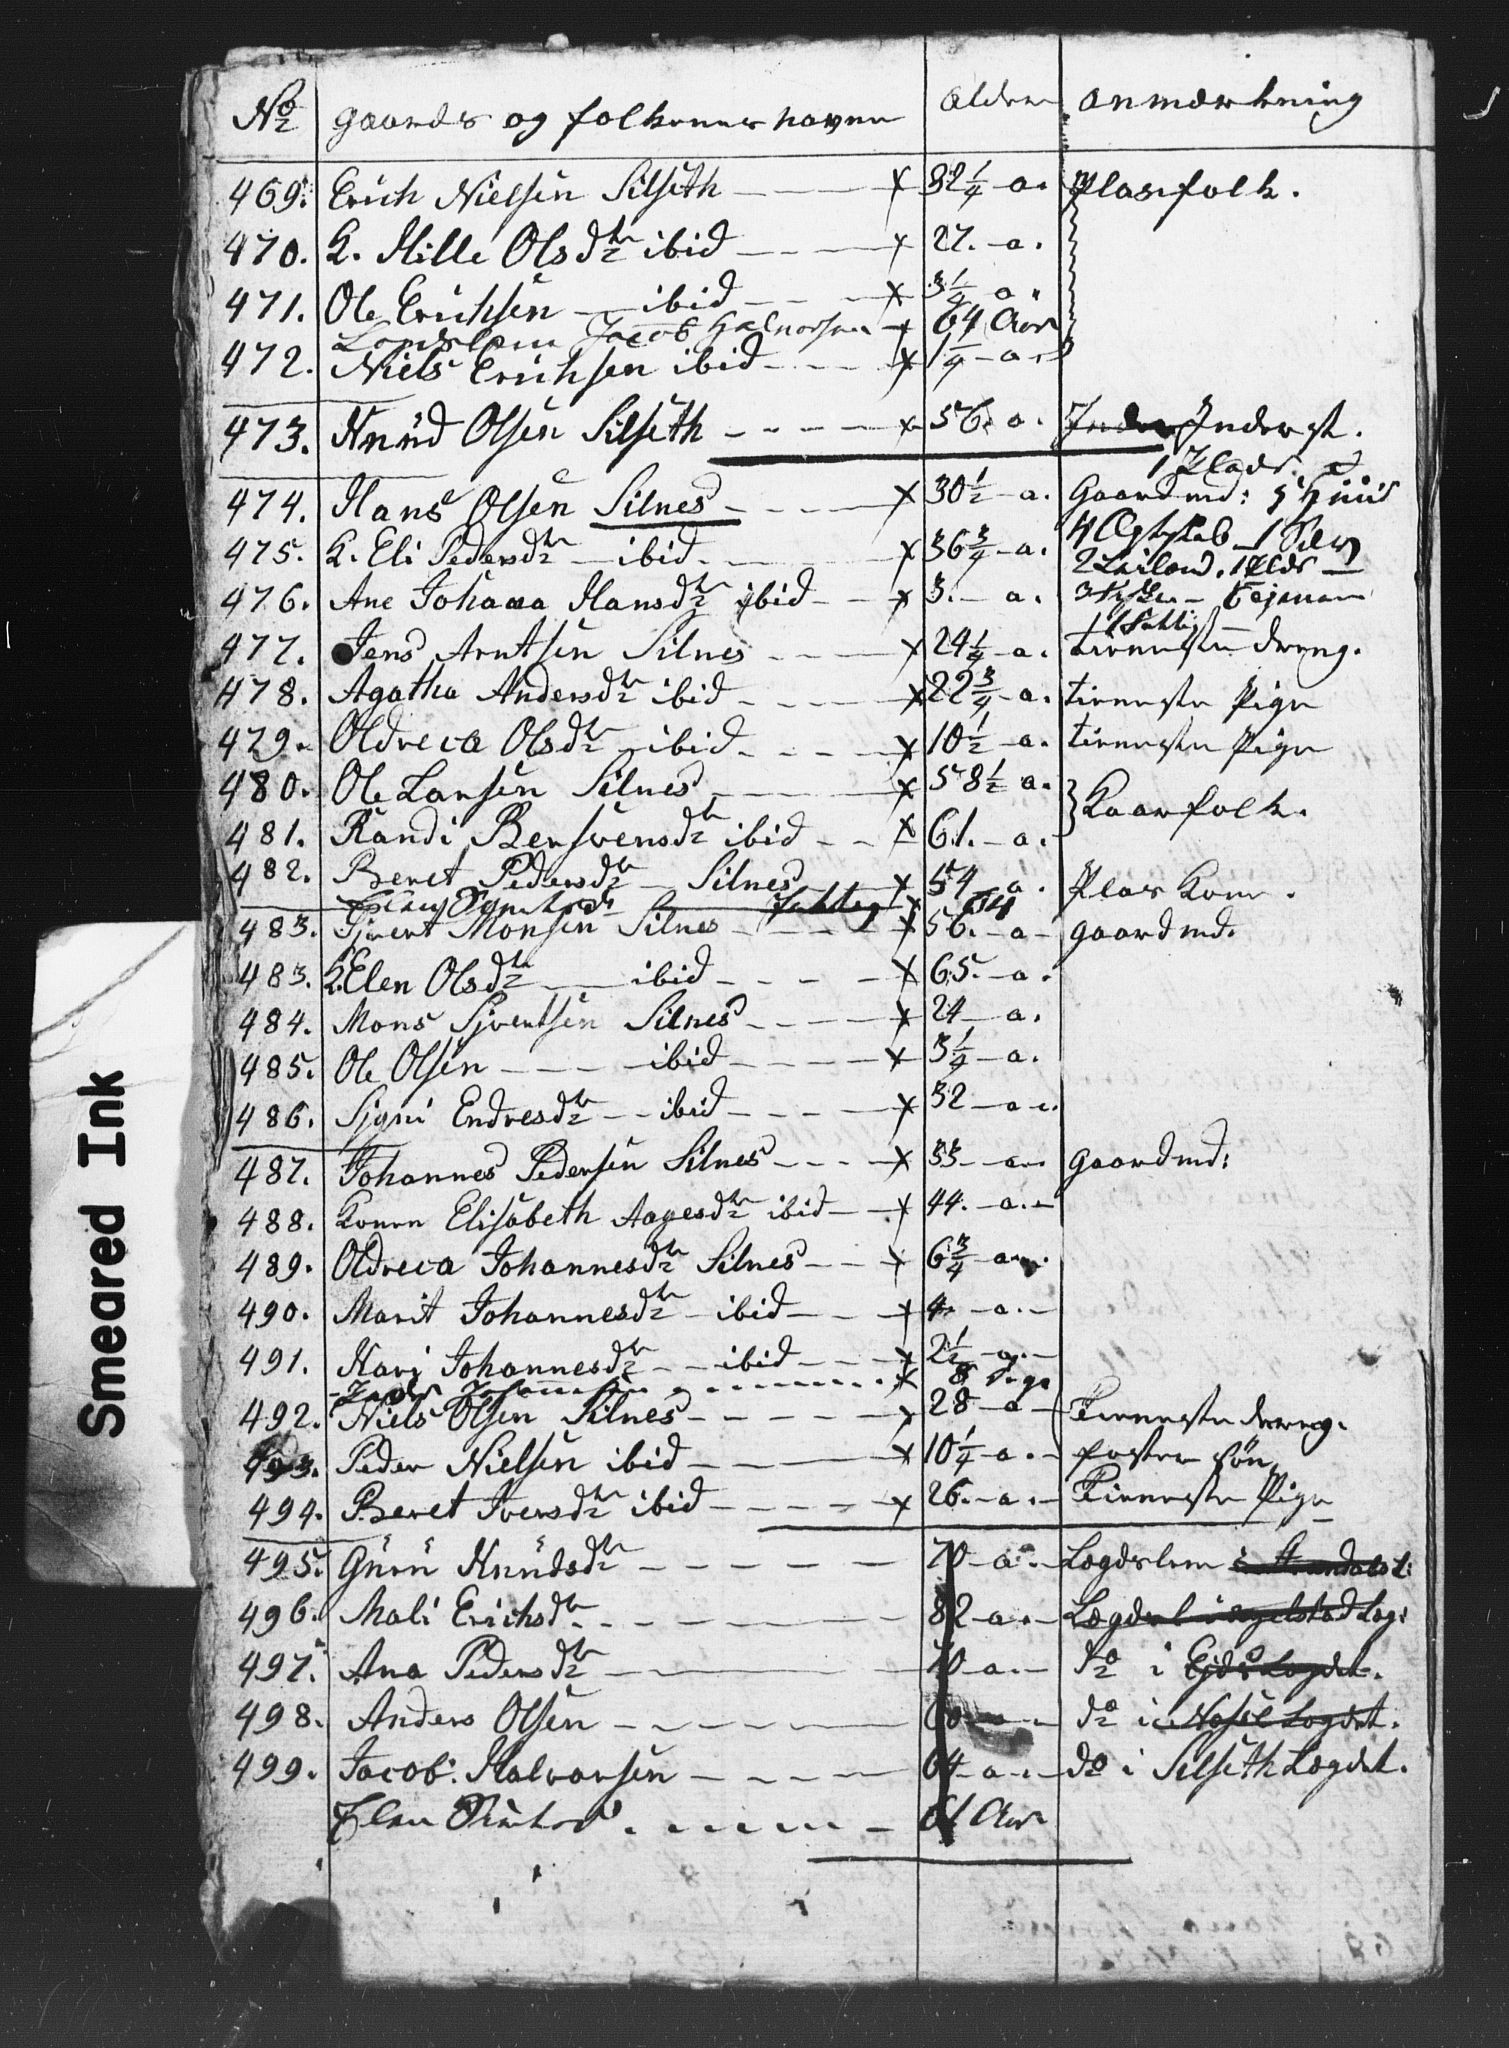 No gaards og folkenes navne alder anmærkning
469. Erich Nielsen Silseth x 32 1/4 a. Plasfolk.
470. K. Mille Olsdtr ibid x 27. a.
471. Ole Erichsen ibid x 3 1/4 a.
Jacob Halvorsen x 64 Aar
472. Niels Erichsen ibid x 1 1/4 a.
473. Knüd Olsen Silseth x 56. a. Inderst.
474. Hans Olsen Silnes x 30 1/2 a. Gaardmd:
475. K. Eli Pedersdtr ibid x 36 3/4 a.
476. Ane Johana Hansdtr ibid x 3. a.
477. Jens Arntsen Silnes x 24 1/4 a. tieneste dreng.
478. Agatha Andersdtr ibid x 22 3/4 a. tieneste Pige
479. Oldreca Olsdtr ibid x 10 1/2 a. tieneste Pige
480. Ole Larsen Silnes x 58 1/2 a. Kaarfolk.
481. Randi Bersvensdtr ibid x 61. a.
482. Beret Pedersdtr Silnes x 54 a. Plas Kone.
483. Sjvert Monsen Silnes x 56. a gaardmd.
483. K. Elen Olsdtr ibid x 65. a.
484. Mons Sjvertsen Silnes x 24 a.
485. Ole Olsen ibid x 3 1/4 a.
486. Sigri Endresdtr ibid x 32 a.
487. Johannes Pedersen Silnes x 33 a. gaardmd:
488. Konen Elisabeth Aagesdtr ibid x 44. a.
489. Oldreca Johannesdtr Silnes x 6 3/4 a.
490. Marit Johannesdtr ibid x 4. a.
491. Kari Johannesdtr ibid x 2 1/2 a.
x 8 Dage
492. Niels Olsen Silnes x 28 a Tieneste dreng.
493. Peder Nielsen ibid x 10 1/4 a. foster sön
494. Beret Iversdtr ibid x 26. a. Tieneste Pige
495. Gürü Knüdsdtr 70 a. Lægdslem
496. Mali Erichsdtr 82 a.
497. Ana Pedersdtr 70 a. do i Ejds Lægdet.
498. Anders Olsen a do i Lægdet.
499. Jacob Halvorsen 64 a. do i Silseth Lægdet.
61 Aar
Smeared Ink